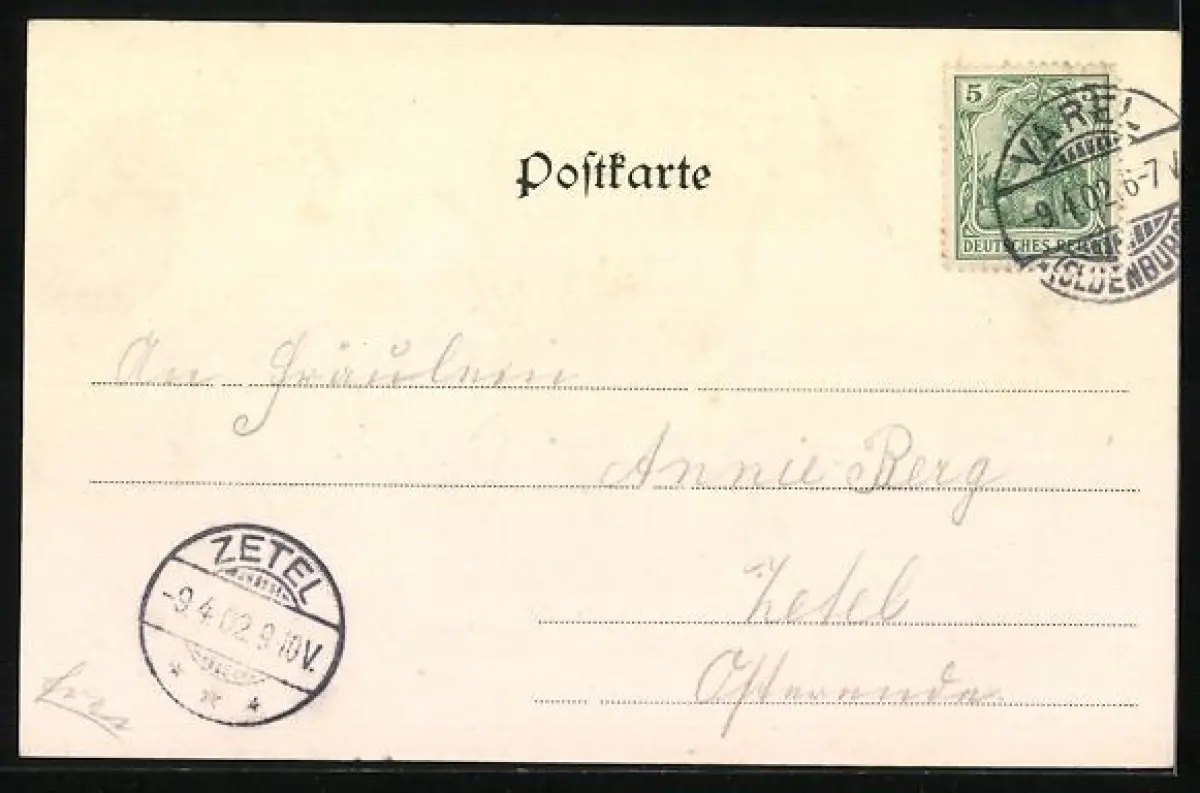 Poſtkarte
5
DEUTSCHES REICH
VAREL
-9.4.02. 6-7 V
(OLDENBURG
An Fräulein
Annie Berg
Zetel
Osterende
ZETEL
-9.4.02. 9-10V.